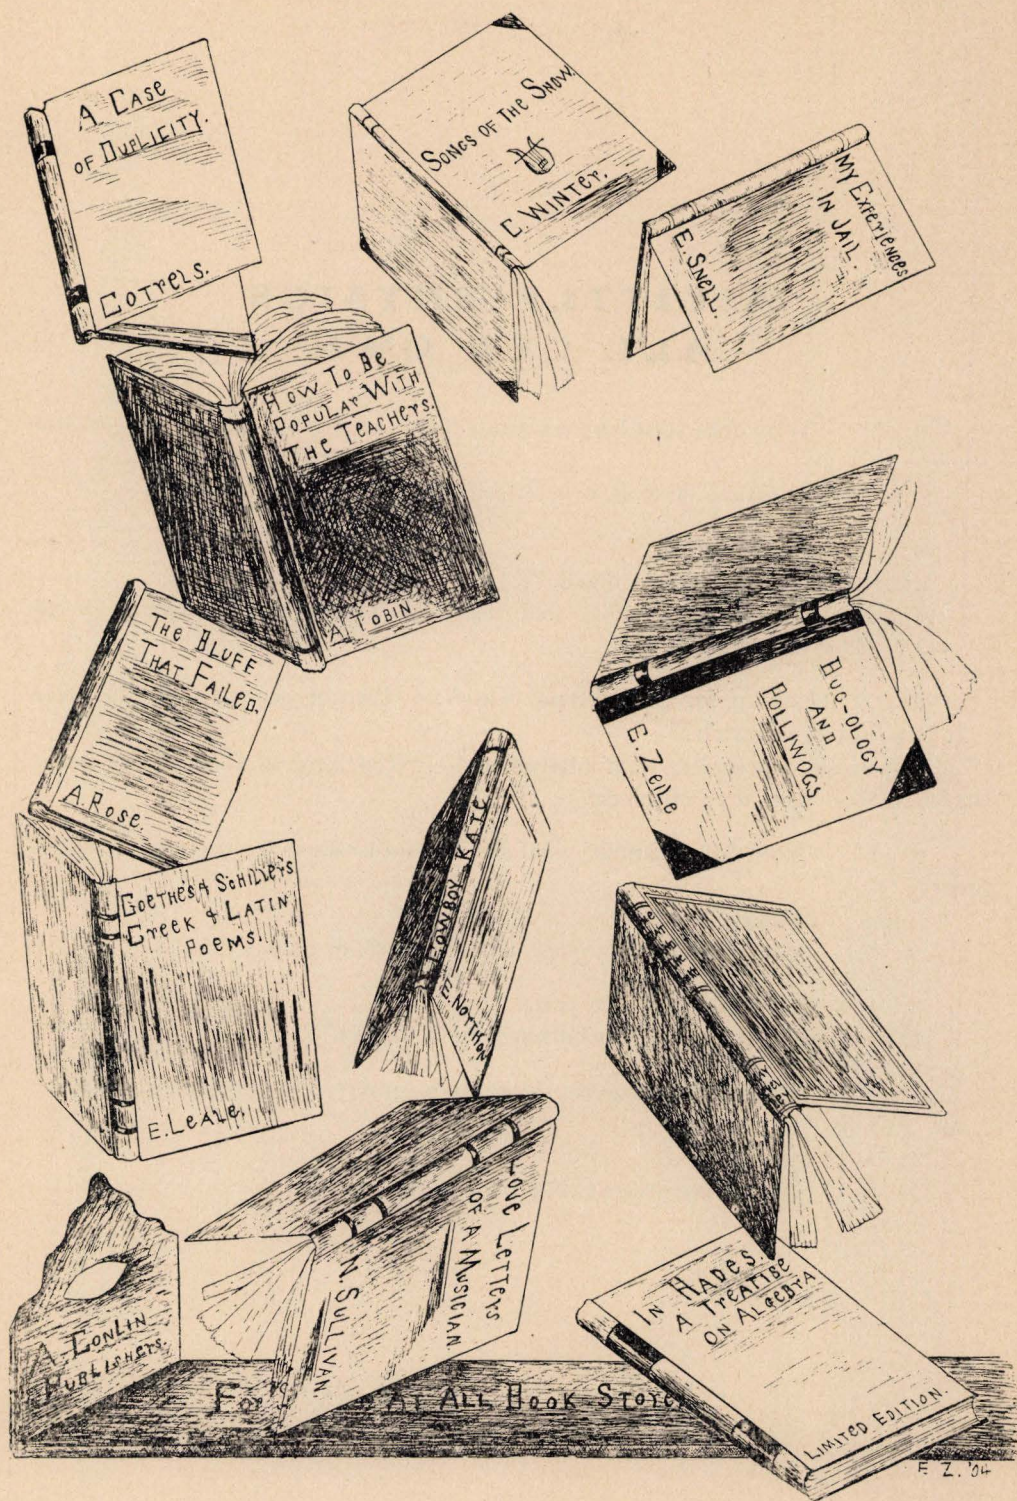 A CASE
OF DUPLICITY.
COTRELS.
SONGS OF THE SNOW.
C. WINTER.
MY EXPERIENCES
IN JAIL.
E. SNELL.
HOW TO BE
POPULAR WITH
THE TEACHERS.
A. TOBIN
THE BLUFF
THAT FAILED.
A. ROSE.
BUG-OLOGY
AND
POLLIWOGS
E. ZEILE
COWBOY KATE
GOETHE'S & SCHILLER'S
GREEK & LATIN
POEMS.
E. LEALE.
LOVE LETTERS
OF A MUSICIAN
N. SULLIVAN
IN HADES.
A TREATISE
ON ALGEBRA
LIMITED EDITION.
A. CONLIN
PUBLISHERS.
FOR AT ALL BOOK STORE
E Z. '04